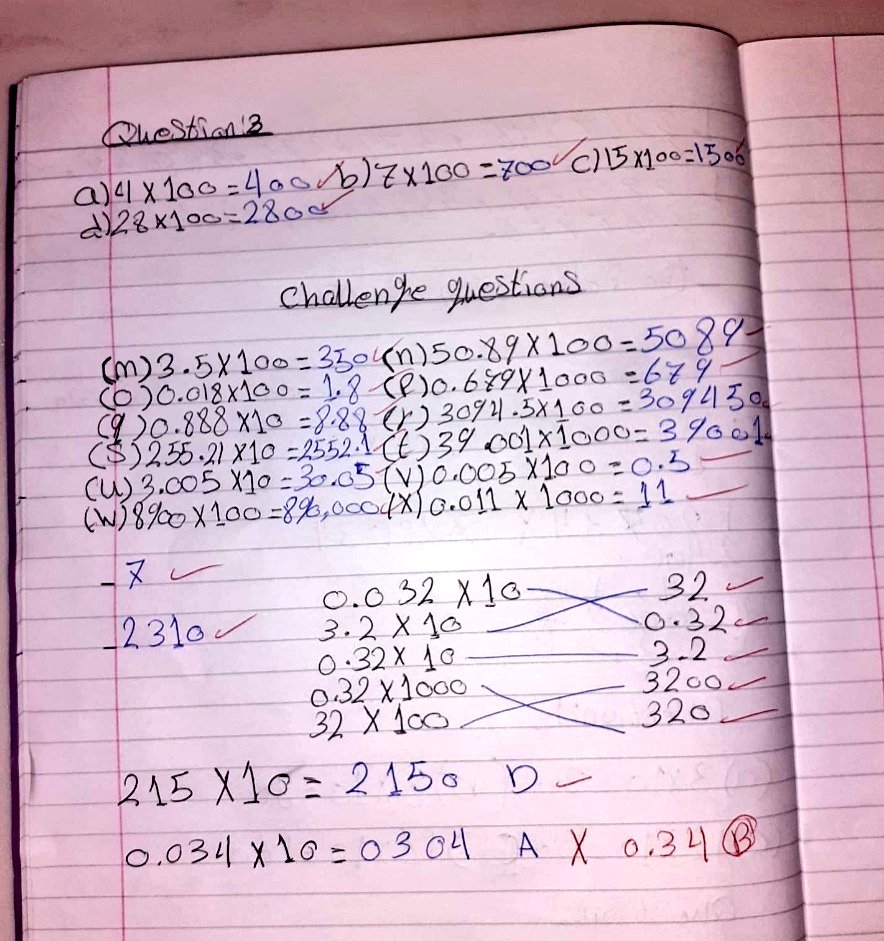 Question 3
a) 4 x 100 = 400 ✓ b) 7 x 100 = 700 ✓ c) 15 x 100 = 1500
d) 28 x 100 = 2800 ✓
Challenge questions
(m) 3.5 x 100 = 350 ✓ (n) 50.89 x 100 = 5089 ✓
(o) 0.018 x 100 = 1.8 ✓ (p) 0.679 x 1000 = 679 ✓
(q) 0.888 x 10 = 8.88 ✓ (r) 3094.5 x 100 = 309450
(s) 255.21 x 10 = 2552.1 ✓ (t) 39.001 x 1000 = 39001
(u) 3.005 x 10 = 30.05 (v) 0.005 x 100 = 0.5 ✓
(w) 8900 x 100 = 890,000 (x) 0.011 x 1000 = 11 ✓
- 7 ✓
- 2310 ✓
0.032 x 10 32 ✓
3.2 x 10 0.32 ✓
0.32 x 10 3.2 ✓
0.32 x 1000 3200 ✓
32 x 100 320 ✓
215 x 10 = 2150 D ✓
0.034 x 10 = 0304 A X 0.34 B